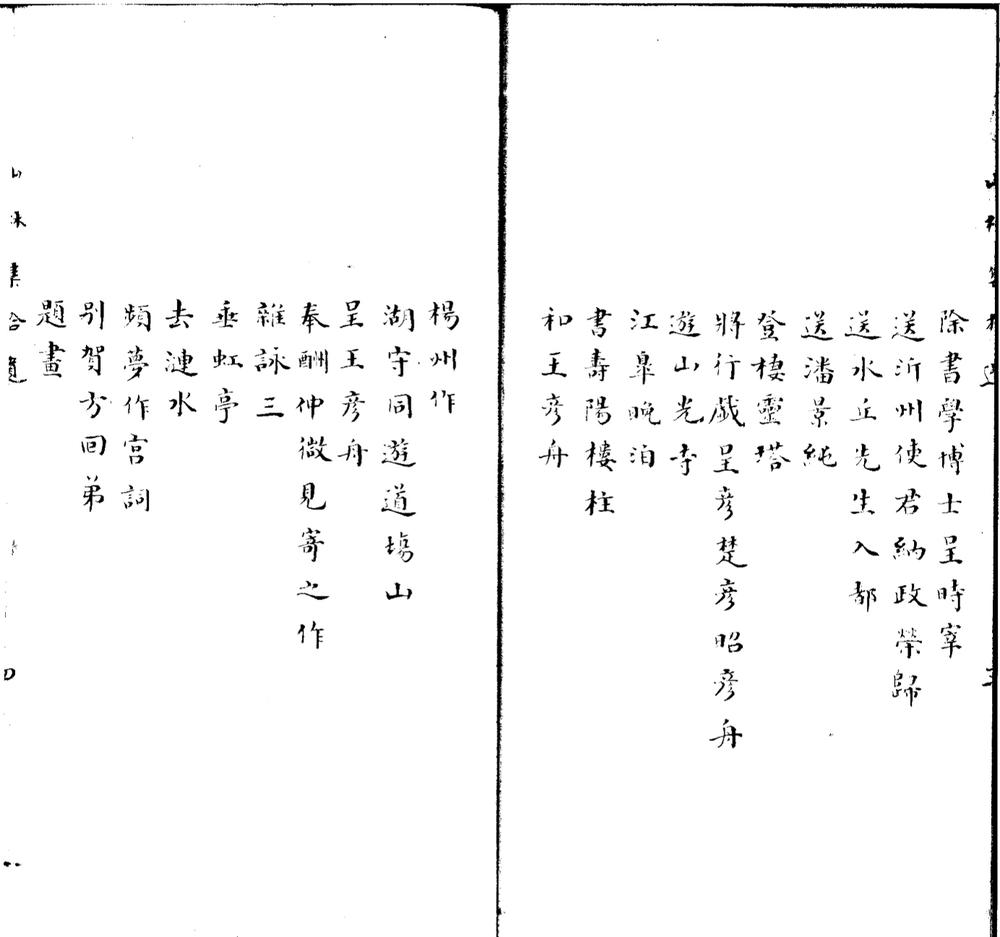 除書學博士呈時宰
送沂州使君納政榮歸
送水丘先生入都
送潘景純
登棲靈塔
將行戯呈彦楚彦昭彦舟
遊山光寺
江臯晚泊
書壽陽樓柱
和王彦舟
楊州作
湖守同遊道塲山
呈王彦舟
奉酬仲微見寄之作
雜詠三
垂虹亭
去漣水
頻夢作宫詞
别賀方回弟
題畫